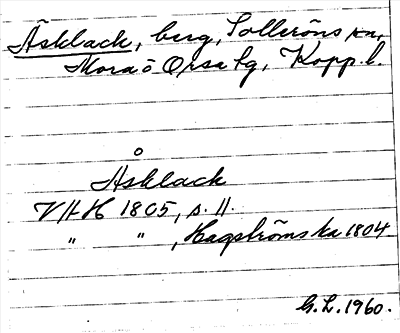 Äsklack, berg, Solleröns sn,
Mora o Orsa tg, Kopp. l.
Åsklack
VHH 1805, s. 11
" " , Hagströms ka 1804
G.L. 1960.